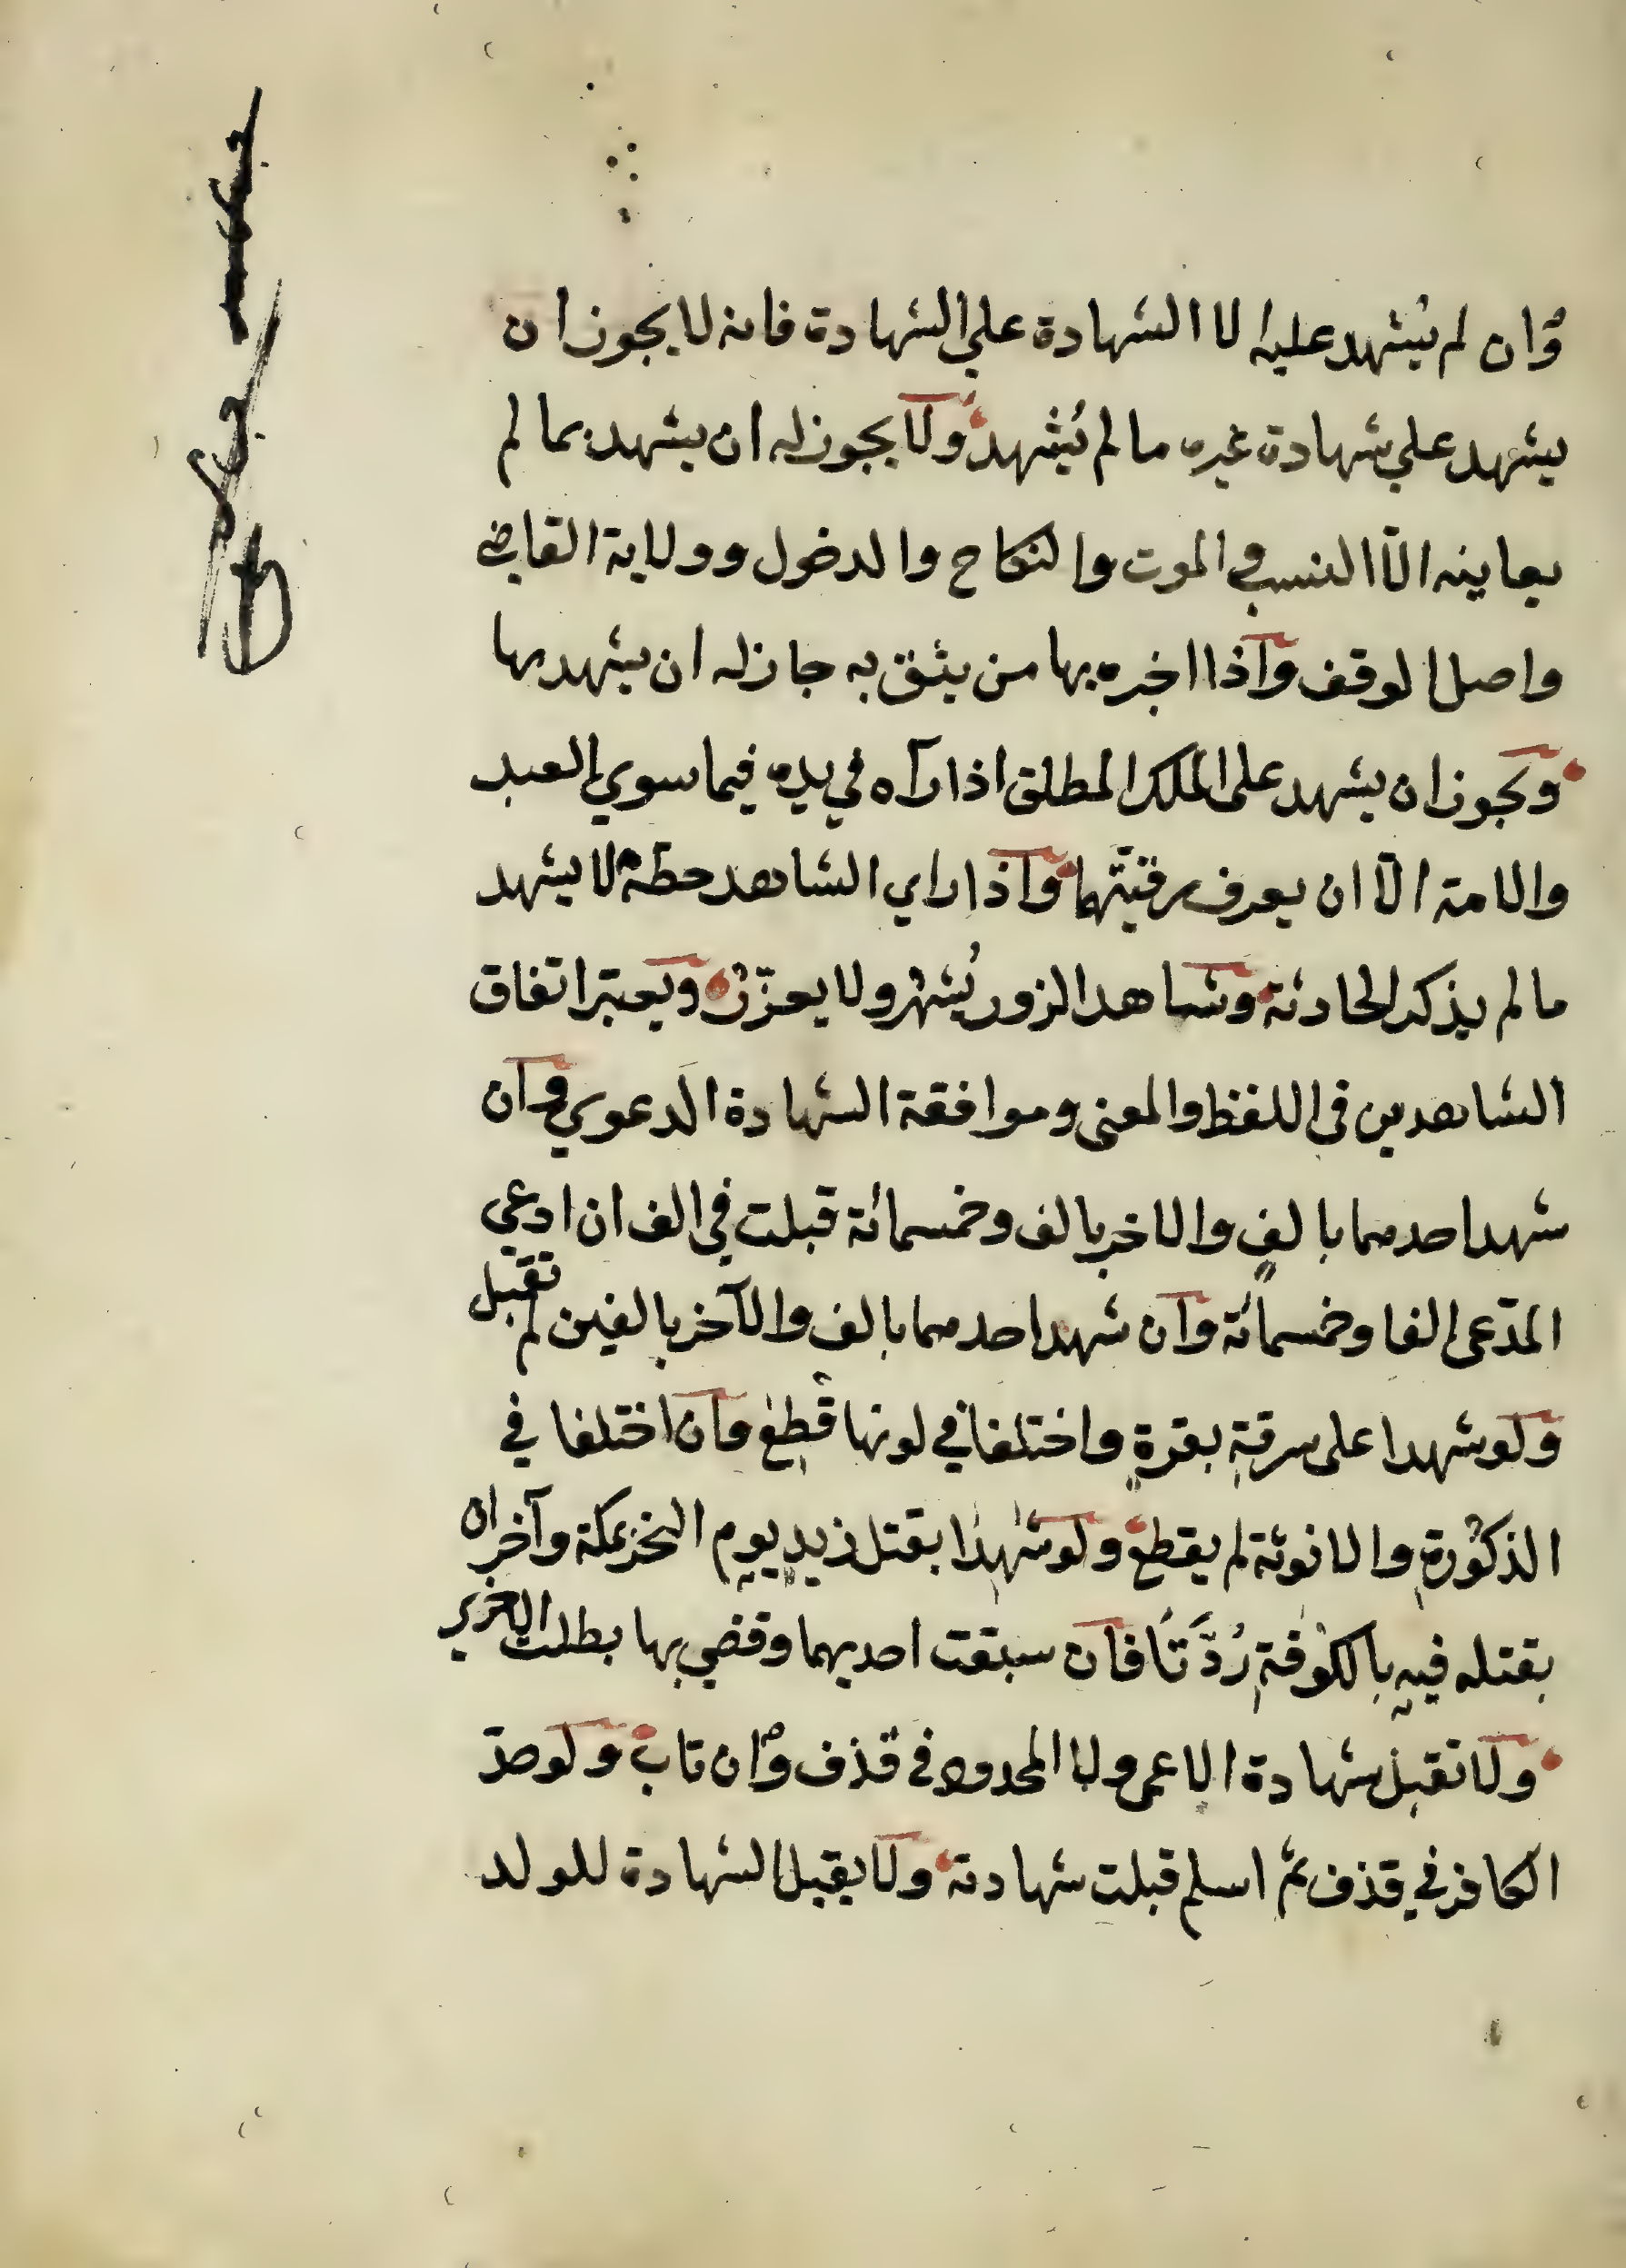 وان لم يُشهد عليه لا الشهادة على الشهادة فانه لا يجوز ان
يشهد على شهادة غيره ما لم يُشهد ولا يجوز له ان يشهد بما لم
يعاينه الّا النسب والموت والنكاح والدخول وولاية القاضي
واصل الوقف واذا اخبره بها من يثق به جاز له ان يشهد بها
ويجوز ان يشهد على الملك المطلق اذا رآه في يده فيما سوي العبد
والامة الّا ان يعرف رقيّتهما واذا راي الشاهد خطّه لا يشهد
ما لم يذكر الحادثة وشاهد الزور يُشهر ولا يعزّر ويعتبر اتفاق
الشاهدين في اللفظ والمعنى وموافقة الشهادة الدعوي وان
شهد احدهما بالفٍ والاخر بالف وخمسمائة قبلت في الف ان ادعي
المدّعي الفا وخمسمائة وان شهد احدهما بالف والآخر بالفين لم تقبل
ولو شهدا على سرقةِ بقرةٍ واختلفا في لونها قُطِع وان اختلفا في
الذكُورةِ والانوثة لم يقطع ولو شهدا بقتل زيدٍ يوم النحر بمكة وآخران
بقتله فيهِ بالكوفةِ رُدَّتَا فان سبقت احديهما وقضي بها بطلت الاخري
ولا تقبل شهادة الاعمى ولا المحدود في قذف وان تاب ولو حدّ
الكافر في قذف ثمّ اسلم قبلت شهادته ولا يقبل الشهادة للولد